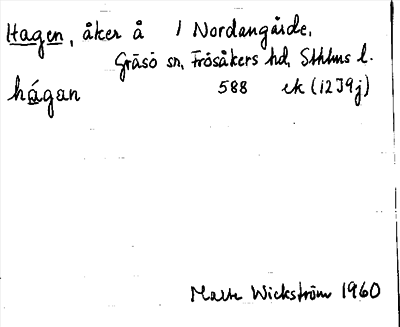 Hagen, åker å 1 Nordangårde,
Gräsö sn, Frösåkers hd, Sthlms l.
hágan 588 ek (12I9j)
Wickström 1960